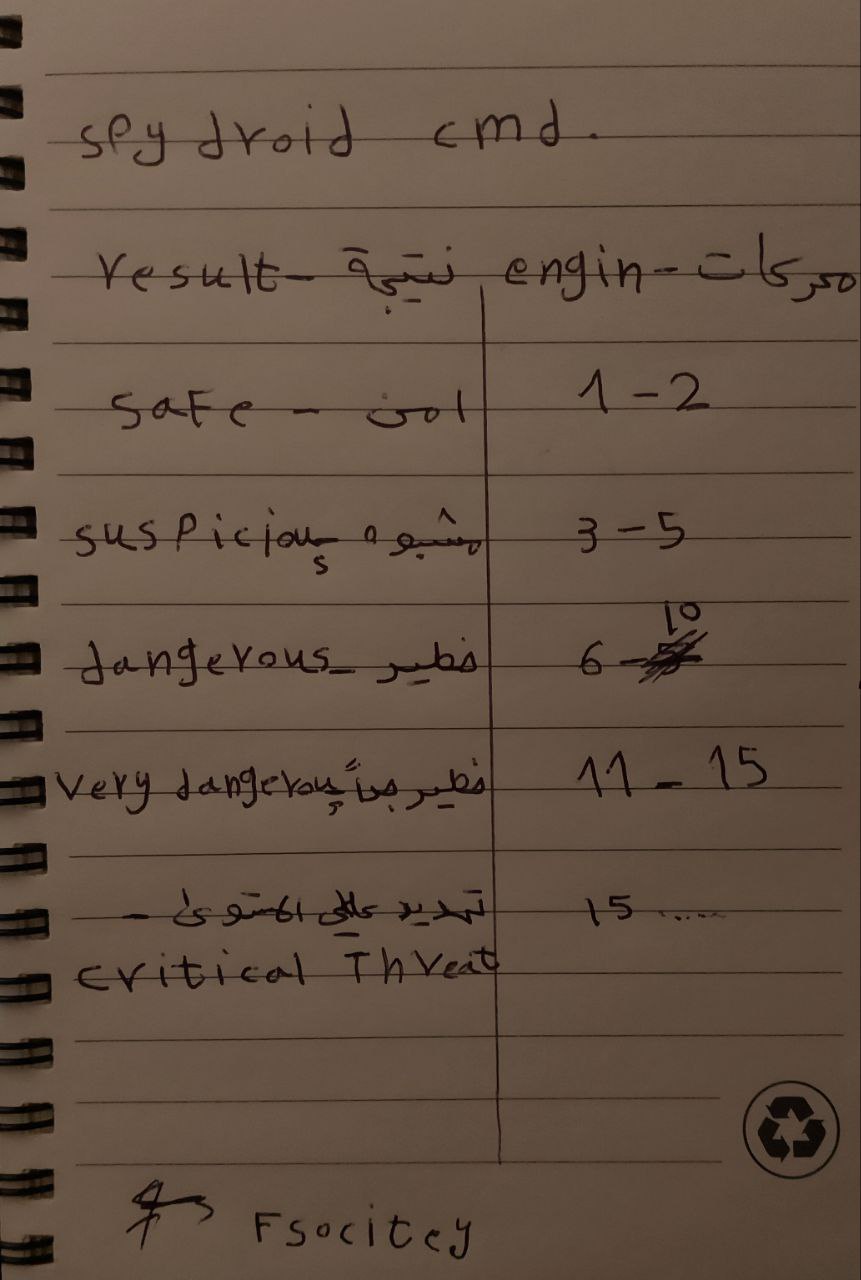 spy droid cmd.
result - نتيجة engin - محركات
safe - امن 1 - 2
suspicious مشبوه 3 - 5
dangerous - خطير 6 - 10
very dangerous خطير جداً 11 - 15
تهديد عالي المستوى - 15 ......
critical Threat
Fsocitey